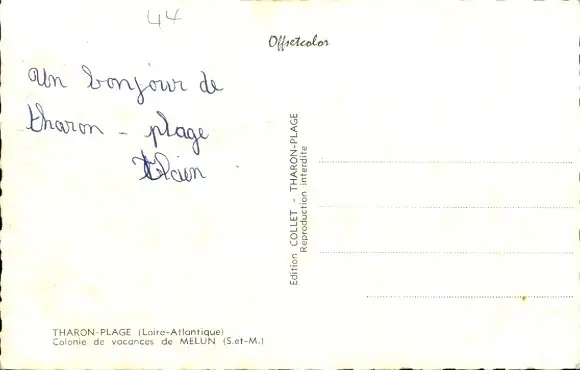 44
Offsetcolor
Un bonjour de
tharon - plage
Alain
Edition COLLET - THARON-PLAGE
Reproduction interdite
THARON-PLAGE (Loire-Atlantique)
Colonie de vacances de MELUN (S.et-M.)